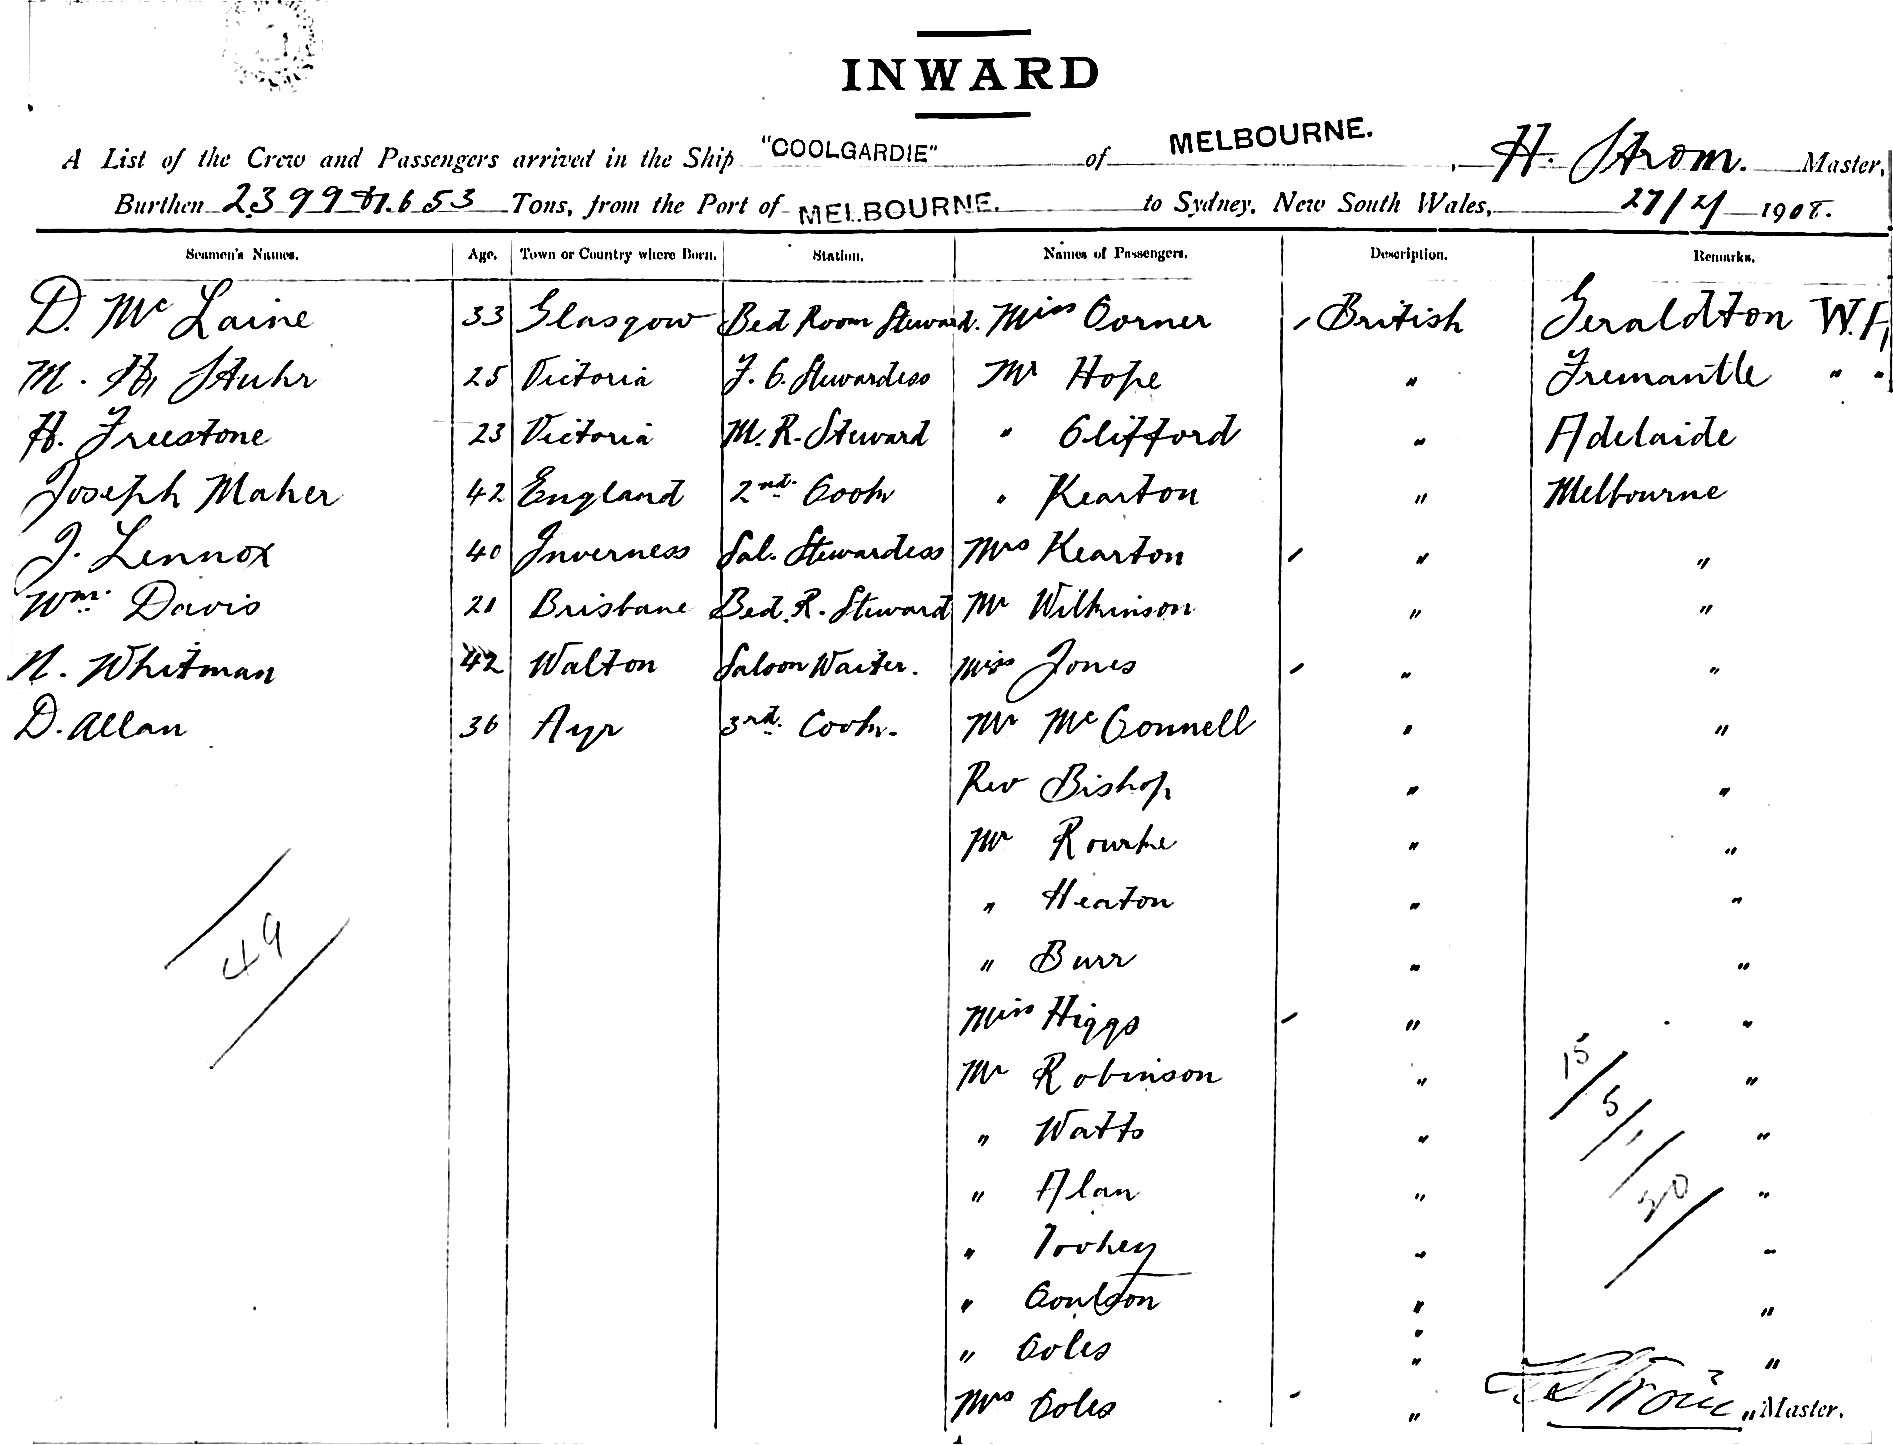 INWARD
A List of the Crew and Passengers arrived in the Ship "COOLGARDIE" of MELBOURNE. , H. Strom. Master,
Burthen 2399 Tons, from the Port of MELBOURNE. to Sydney, New South Wales, 27/2/ 1908.
Seamen's Names. Age. Town or Country where Born. Station. Names of Passengers. Description. Remarks.
D. Mc Laine 33 Glasgow Bed Room Steward. Miss Corner British Geraldton W.A
M. H. Stuhr 25 Victoria F. C. Stewardess Mr Hope " Fremantle " "
H. Freestone 23 Victoria M. R. Steward " Clifford " Adelaide
Joseph Maher 42 England 2nd. Cook " Kearton " Melbourne
J. Lennox 40 Inverness Sal. Stewardess Mrs Kearton " "
Wm. Davis 21 Brisbane Bed. R. Steward Mr Wilkinson " "
N. Whitman 42 Walton Saloon Waiter. Miss Jones " "
D. Allan 36 Ayr 3rd. Cook. Mr Mc Connell " "
Rev Bishop " "
Mr Rourke " "
" Heaton " "
" Burr " "
Miss Higgs " "
Mr Robinson " "
" Watts " "
" Alan " "
" Toohey " "
" Coulson " "
" Coles " "
Mrs Coles " "
49
15/5/1/20
H Strom Master.